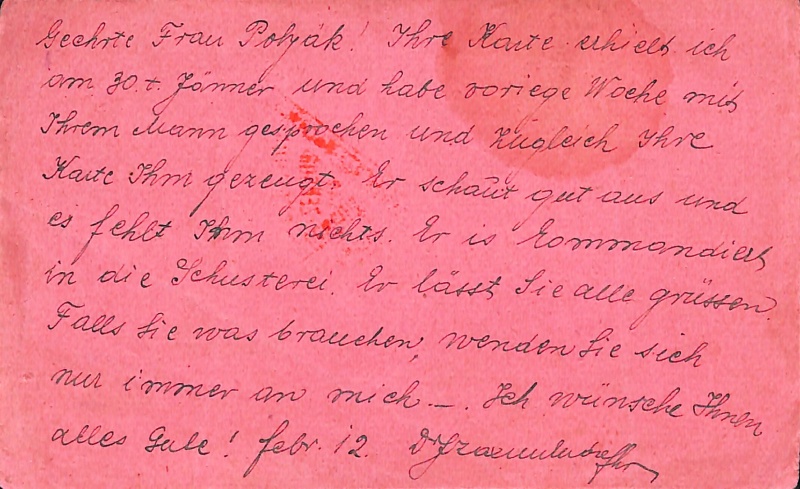 Geehrte Frau Polyák! Ihre Karte erhielt ich
am 30.t. Jänner und habe voriege Woche mit
Ihrem Mann gesprochen und zugleich Ihre
Karte Ihm gezeugt. Er schaut gut aus und
es fehlt Ihm nichts. Er is kommandiert
in die Schusterei. Er lässt Sie alle grüssen.
Falls Sie was brauchen, wenden Sie sich
nur immer an mich –. Ich wünsche Ihnen
alles Gute! febr. 12.